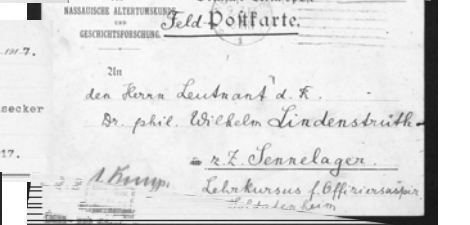 NASSAUISCHE ALTERTUMSKUNDE
UND
GESCHICHTSFORSCHUNG.
Feld Postkarte.
7.
An
den Herrn Leutnant d. R.
Dr. phil. Wilhelm Lindenstruth
z. Z. Sennelager.
Lehrkursus f. Offiziersaspir.
Soldatenheim
1. Komp.
secker
17.